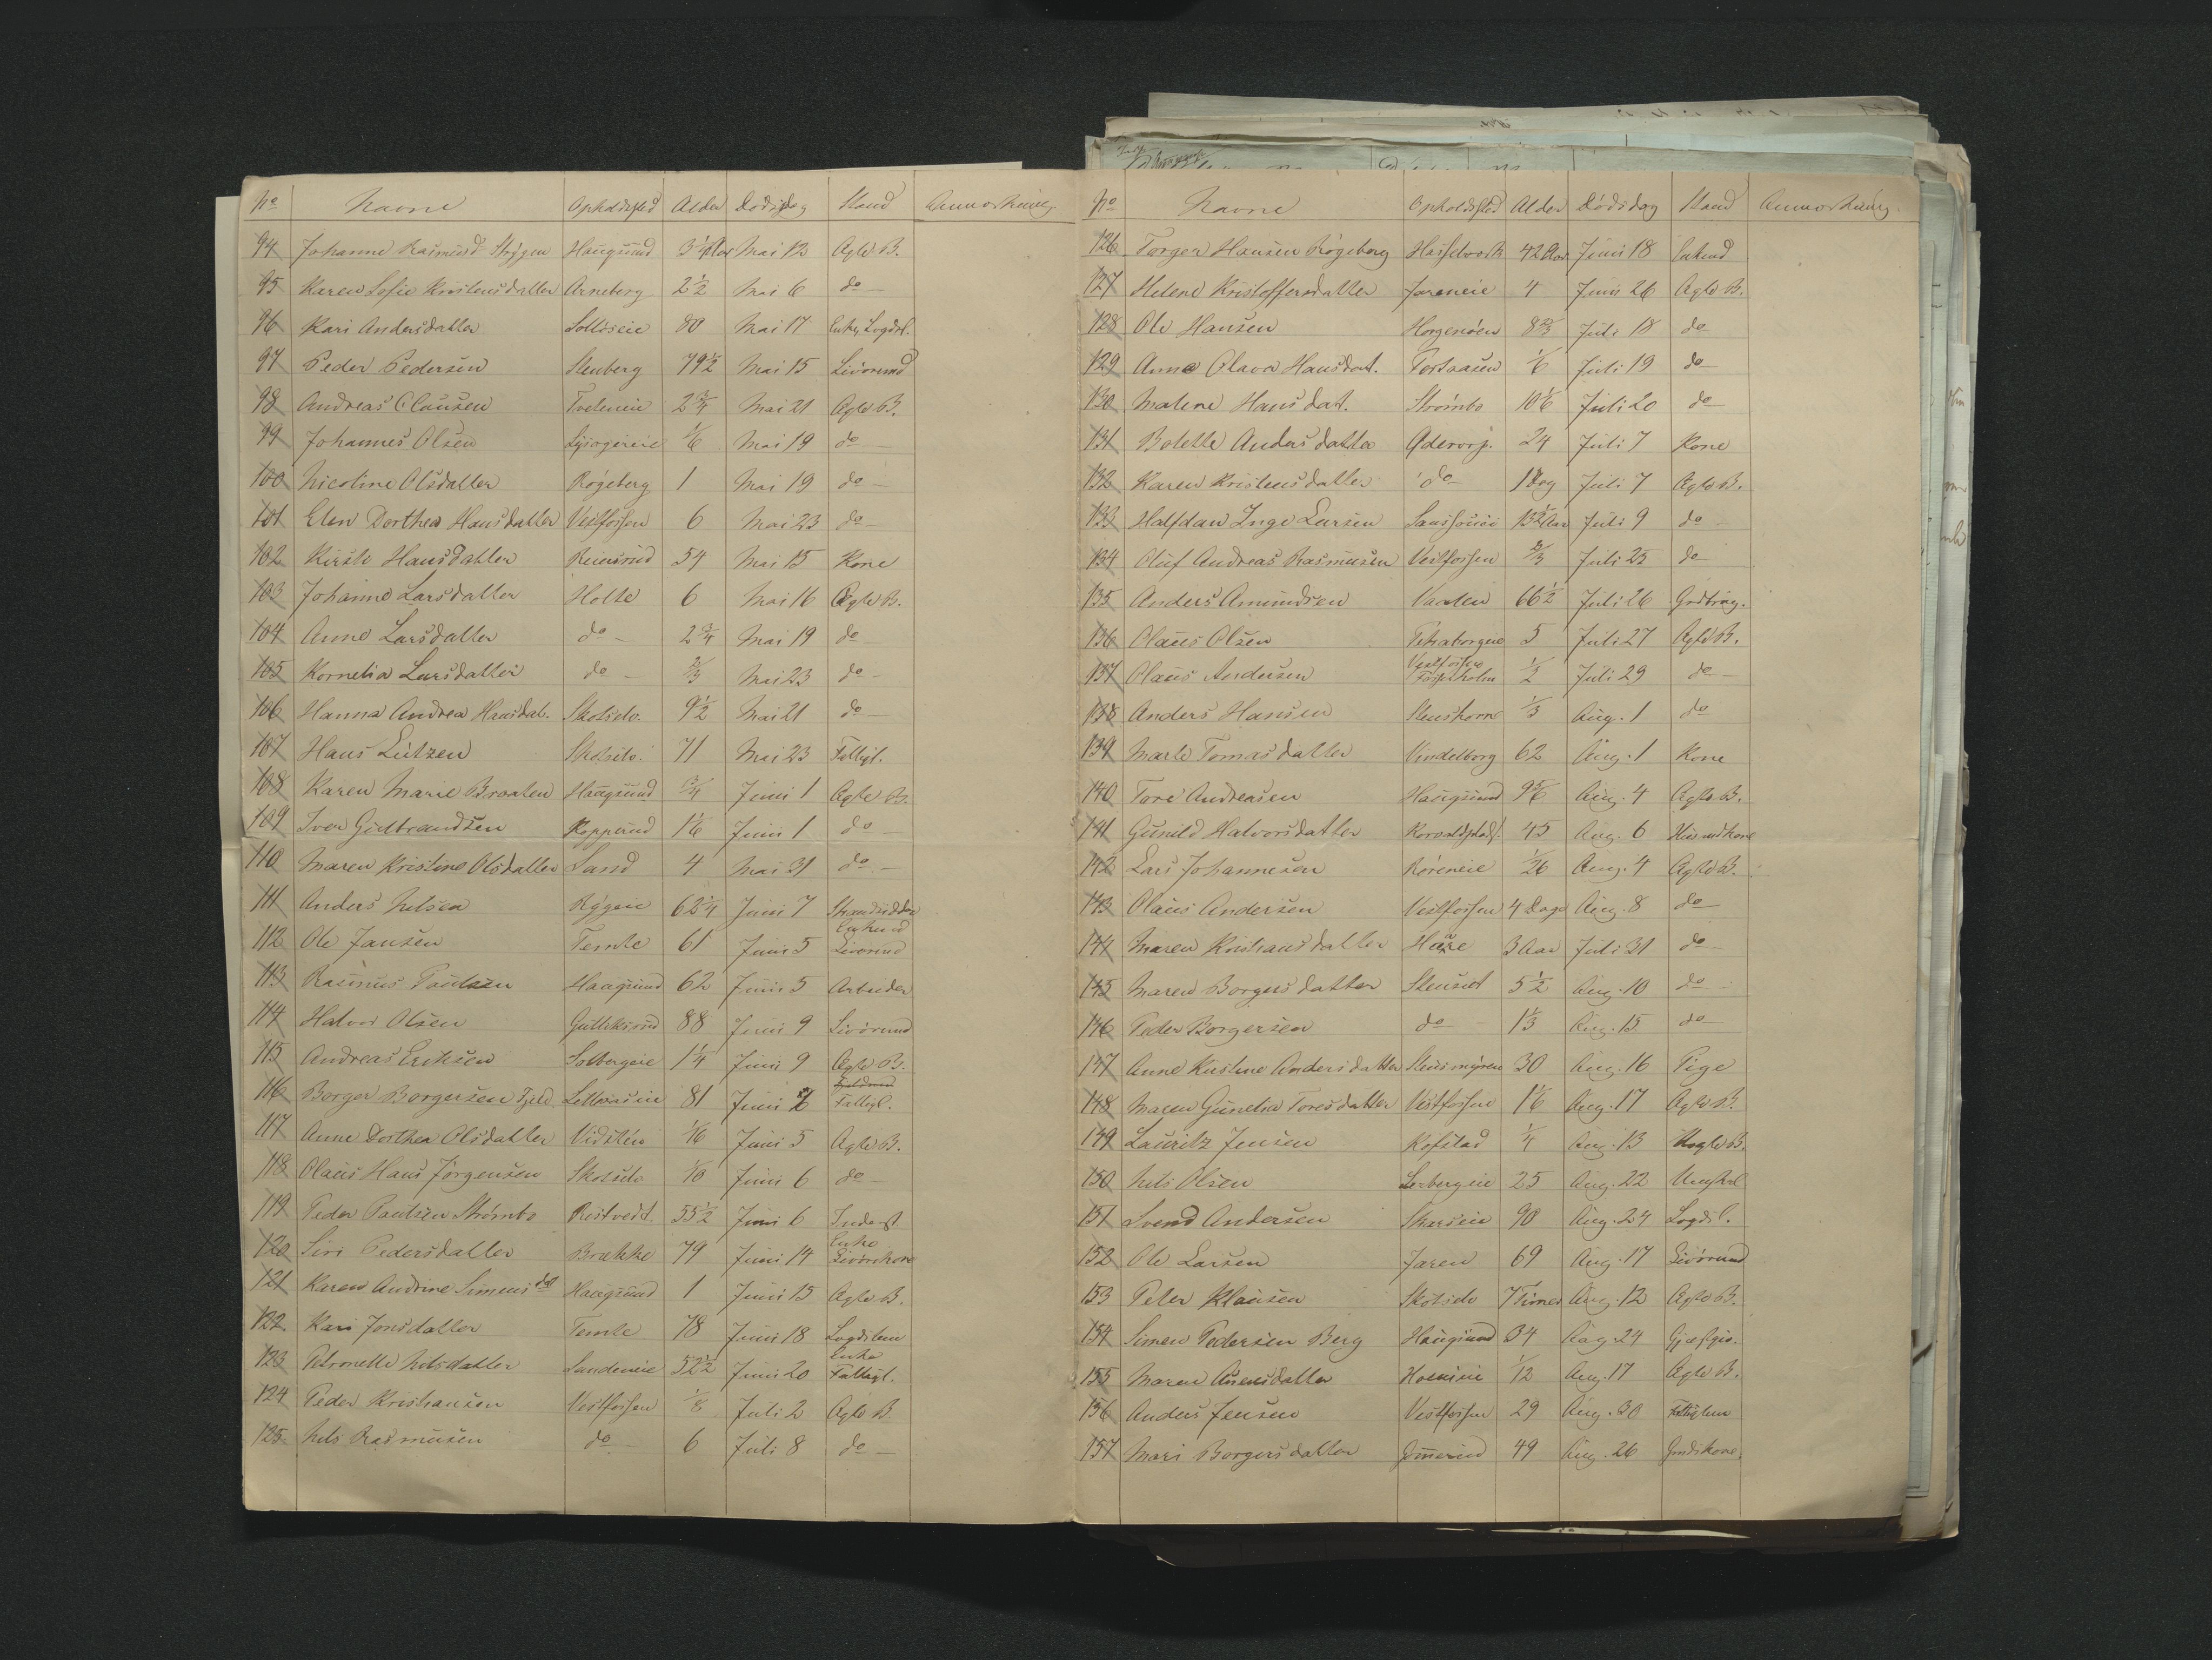 No Navne Opholdssted Alder Dødsdag Stand Anmærkning.
94 Johanne Rasmusd. Haugsund 3 1/4 Aar Mai 13 Ægte B.
95 Karen Sofie Kristensdatter Arneberg 2 1/2 Mai 6 do
96 Kari Andersdatter Solløseie 80 Mai 17 Enke, Logdsl.
97 Peder Pedersen Stenberg 79 1/2 Mai 15 Livørmd
98 Andreas Clausen Tveteneie 2 3/4 Mai 21 Ægte B.
99 Johannes Olsen 1/6 Mai 19 do
100 Nicoline Olsdatter Røgeberg 1 Mai 19 do
101 Elen Dorthea Hansdatter Vestfossen 6 Mai 23 do
102 Kirsti Hansdatter 54 Mai 15 Kone
103 Johanne Larsdatter Holte 6 Mai 16 Ægte B.
104 Anne Larsdatter do 2 3/4 Mai 19 do
105 Kornelia Larsdatter do 2/3 Mai 23 do
106 Hanna Andrea Hansdat. Skotselv. 9 1/2 Mai 21 do
107 Hans Lützen Skotselv. 71 Mai 23 Fattigl.
108 Karen Marie Braaten Haugsund 3/4 Juni 1 Ægte B.
109 Iver Gulbrandsen Kopperud 1 1/6 Juni 1 do
110 Maren Kristine Olsdatter Sand 4 Mai 31 do
111 Anders Nelsen Rygeie 62 1/4 Juni 7 Strandsidder
112 Ole Jansen Temte 61 Juni 5 Enkemd Livørmd
113 Rasmus Paulsen Haugsund 62 Juni 5 Arbeider
114 Halvor Olsen Gulliksrud 88 Juni 9 Livørmd
115 Andreas Eriksen Solbergeie 1 1/4 Juni 9 Ægte B.
116 Borger Borgersen 81 Juni 6 Fattigl.
117 Anne Dorthea Olsdatter Vidsten 1/16 Juni 5 Ægte B.
118 Olaus Hans Jørgensen Skotselv 1/10 Juni 6 do
119 Peder Paulsen Strømbo Ristvedt 55 1/2 Juni 6 Inderst
120 Siri Pedersdatter Brække 79 Juni 14 Enke Livørskone
121 Karen Andrine Simensdat Haugsund 1 Juni 15 Ægte B.
122 Kari Jonsdatter Temte 78 Juni 18 Logdslem
123 Petronelle Nilsdatter Sandeneie 52 1/2 Juni 20 Enke Fattigl.
124 Peder Kristiansen Vestfossen 1/8 Juli 2 Ægte B.
125 Nels Rasmusen do 6 Juli 8 do
No Navne Opholdssted Alder Dødsdag Stand Anmærkning.
126 Torger Hansen Røgeberg Hasselverk 42 Aar Juni 18 Enkemd
127 Helene Kristoffersdatter Jareneie 4 Juni 26 Ægte B.
128 Ole Hansen Horgenøen 8 2/3 Juli 18 do
129 Anne Olava Hansdat. 1/6 Juli 19 do
130 Malene Hansdat. Strømbo 10 1/6 Juli 20 do
131 Bolette Andersdatter 24 Juli 7 Kone
132 Karen Kristensdatter do 1 Dag Juli 7 Ægte B.
133 Halfdan Inge Larsen Sanssouci 13 1/2 Aar Juli 9 do
134 Oluf Andreas Rasmusen Vestfossen 2/3 Juli 25 do
135 Anders Amundsen Vaalen 66 1/2 Juli 26
136 Olaus Olsen 5 Juli 27 Ægte B.
137 Olaus Andersen Vestfossen Fosseholm 1/2 Juli 29 do
138 Anders Hansen Stenshorne 1/3 Aug. 1 do
139 Marte Tomasdatter Vendelborg 62 Aug. 1 Kone
140 Tore Andreasen Haugsund 9 5/6 Aug. 4 Ægte B.
141 Gunild Halvorsdatter 45 Aug. 6 Husmdkone
142 Lars Johannesen Røreneie 1/26 Aug. 4 Ægte B.
143 Olaus Andersen Vestfossen 4 Dage Aug. 8 do
144 Maren Kristiansdatter 3 Aar Juli 31 do
145 Maren Borgersdatter Stenset 5 1/2 Aug. 10 do
146 Peder Borgersen do 1 1/3 Aug. 15 do
147 Anne Kirstine Andersdatter Stensmyren 30 Aug. 16 Pige
148 Maren Gunelia Toresdatter Vestfossen 1 1/6 Aug. 17 Ægte B.
149 Lauritz Jensen Kofstad 1/4 Aug. 13 Uægte B.
150 Nils Olsen 25 Aug. 22 Ungkrl
151 Svend Andersen Skarseie 90 Aug. 24 Logdsl.
152 Ole Larsen Jaren 69 Aug. 17 Livørmd
153 Peter Klausen Skotselv 7 Timer Aug. 12 Ægte B.
154 Simen Pedersen Berg Haugsund 34 Aug. 24 Gjæstgiv.
155 Maren 1/12 Aug. 17 Ægte B.
156 Anders Jensen Vestfossen 29 Aug. 30 Fattiglem
157 Mari Borgersdatter 49 Aug. 26 Grdskone.